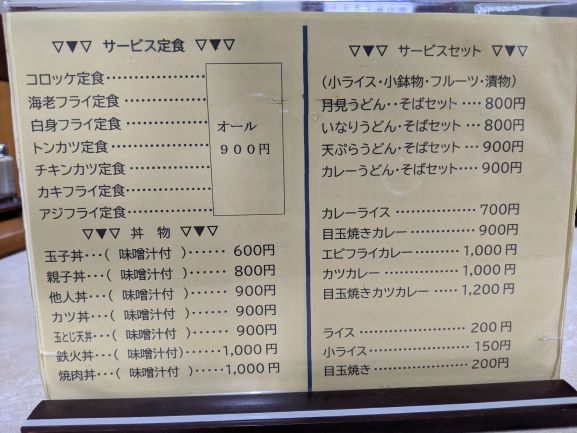 ▽▼▽ サービス定食 ▽▼▽
コロッケ定食‥‥‥‥‥‥
海老フライ定食‥‥‥‥‥
白身フライ定食‥‥‥‥‥
トンカツ定食‥‥‥‥‥‥
チキンカツ定食‥‥‥‥‥
カキフライ定食‥‥‥‥‥
アジフライ定食‥‥‥‥‥
オール
900円
▽▼▽ 丼 物 ▽▼▽
玉子丼‥･( 味噌汁付 )‥‥‥ 600円
親子丼‥･( 味噌汁付 )‥‥‥ 800円
他人丼‥･( 味噌汁付 )‥‥‥ 900円
カツ丼‥･( 味噌汁付 )‥‥‥ 900円
玉とじ天丼‥･( 味噌汁付 )‥‥‥ 900円
鉄火丼‥･( 味噌汁付 )‥‥‥1,000円
焼肉丼‥･( 味噌汁付 )‥‥‥1,000円
▽▼▽ サービスセット ▽▼▽
(小ライス・小鉢物・フルーツ・漬物)
月見うどん・そばセット ‥･ 800円
いなりうどん・そばセット ‥･ 800円
天ぷらうどん・そばセット‥･･900円
カレーうどん・そばセット‥･･900円
カレーライス ‥‥‥‥‥‥ 700円
目玉焼きカレー‥‥‥‥‥ 900円
エビフライカレー ‥‥‥‥ 1,000円
カツカレー ‥‥‥‥‥‥ 1,000円
目玉焼きカツカレー‥‥‥ 1,200円
ライス ‥‥‥‥‥‥‥ 200円
小ライス‥‥‥‥‥‥‥ 150円
目玉焼き ‥‥‥‥‥‥ 200円